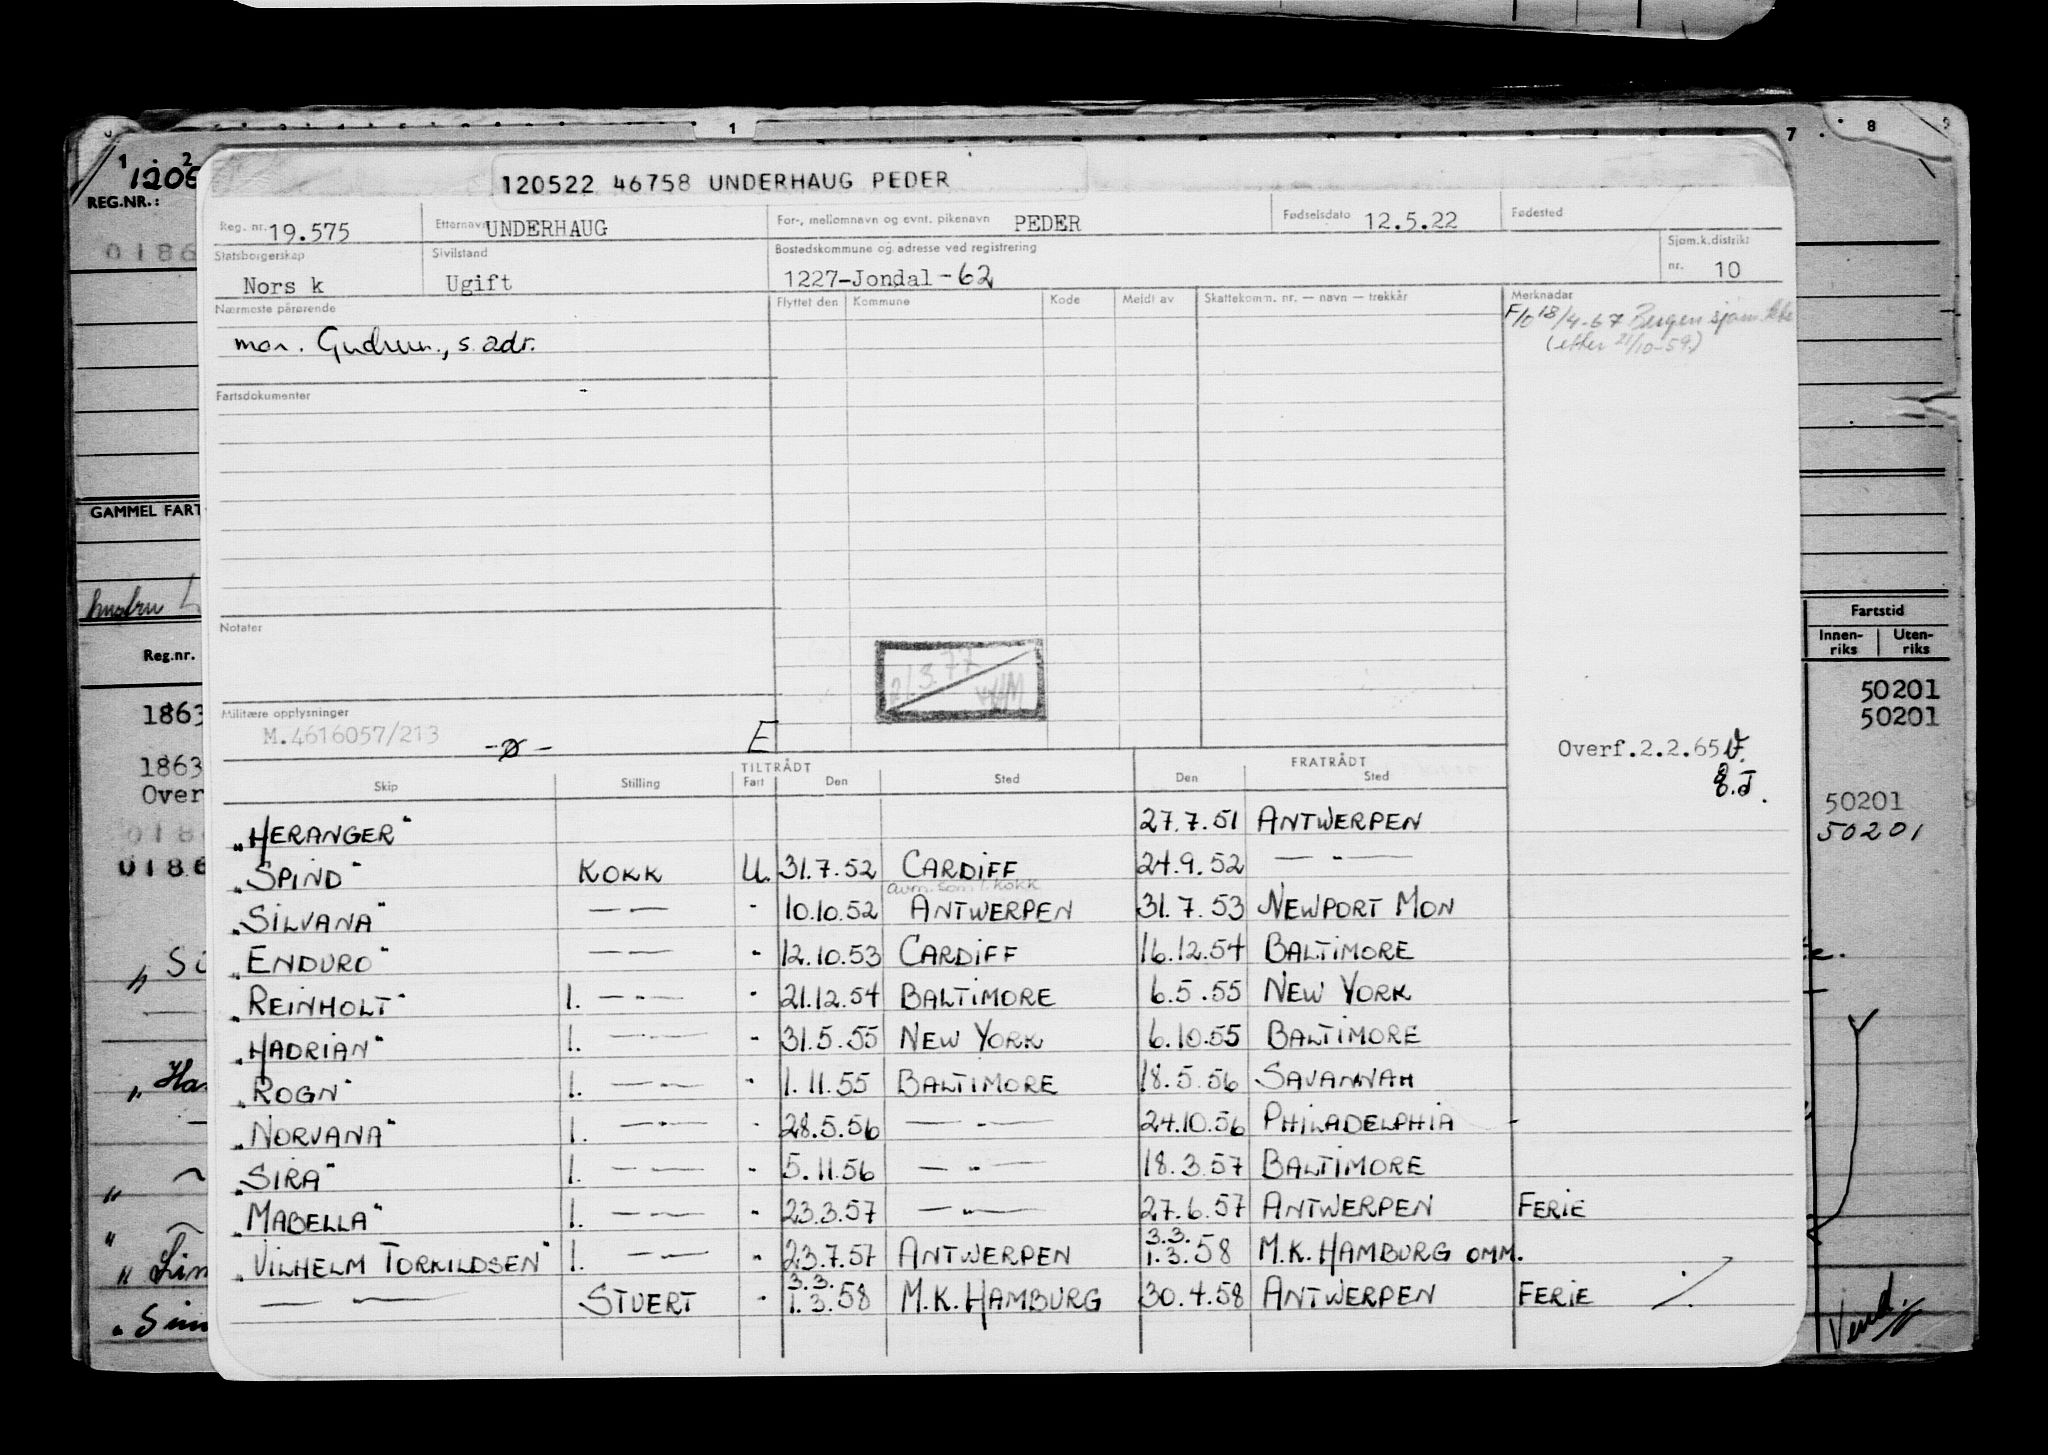 120522 46758 UNDERHAUG PEDER
Reg. nr. 19.575 Etternavn UNDERHAUG For-, mellomnavn og evnt. pikenavn PEDER Fødselsdato 12.5.22 Fødested
Statsborgerskap Nors k Sivilstand Ugift Bostedskommune og adresse ved registrering 1227-Jondal-62 Sjøm.k.distrikt nr. 10
Nærmeste pårørende Flyttet den Kommune Kode Meldt av Skattekomm. nr. — navn — trekkår Merknader
mor. Gudrun., s. adr.
F/0 18/4-67 Bergen sjøm.
(etter 21/10-59.)
Fartsdokumenter
Notater
21.3.77
Militære opplysninger
M.4616057/213 -Ø- E
Overf.2.2.65
TILTRÅDT FRATRÅDT
Skip Stilling Fart Den Sted Den Sted
"HERANGER" 27.7.51 ANTWERPEN
"SPIND" KOKK U. 31.7.52 CARDIFF 24.9.52 — " —
avm. som 1. kokk
"SILVANA" — — - 10.10.52 ANTWERPEN 31.7.53 NEWPORT MON
"ENDURO" — — - 12.10.53 CARDIFF 16.12.54 BALTIMORE
"REINHOLT" 1. — - — - 21.12.54 BALTIMORE 6.5.55 NEW YORK
"HADRIAN" 1. — - — - 31.5.55 NEW YORK 6.10.55 BALTIMORE
"ROGN" 1. — - — - 1.11.55 BALTIMORE 18.5.56 SAVANNAH
"NORVANA" 1. — - — - 28.5.56 — - — 24.10.56 PHILADELPHIA -
"SIRA" 1. — - — - 5.11.56 — " — 18.3.57 BALTIMORE
"MABELLA" 1. — - — - 23.3.57 — " — 27.6.57 ANTWERPEN FERIE
3.3.
"VILHELM TORKILDSEN" 1. — - — - 23.7.57 ANTWERPEN 1.3.58 M.K. HAMBURG OMM.
3.3.
— " — STUERT - 1.3.58 M.K. HAMBURG 30.4.58 ANTWERPEN FERIE ./.
1 2
REG.NR.:
0186
GAMMEL FART
Reg.nr.
1863
1863
Over
0186
0186
1
7 8 9
Fartstid
Innen-
riks
Uten-
riks
50201
50201
50201
50201
Vend.